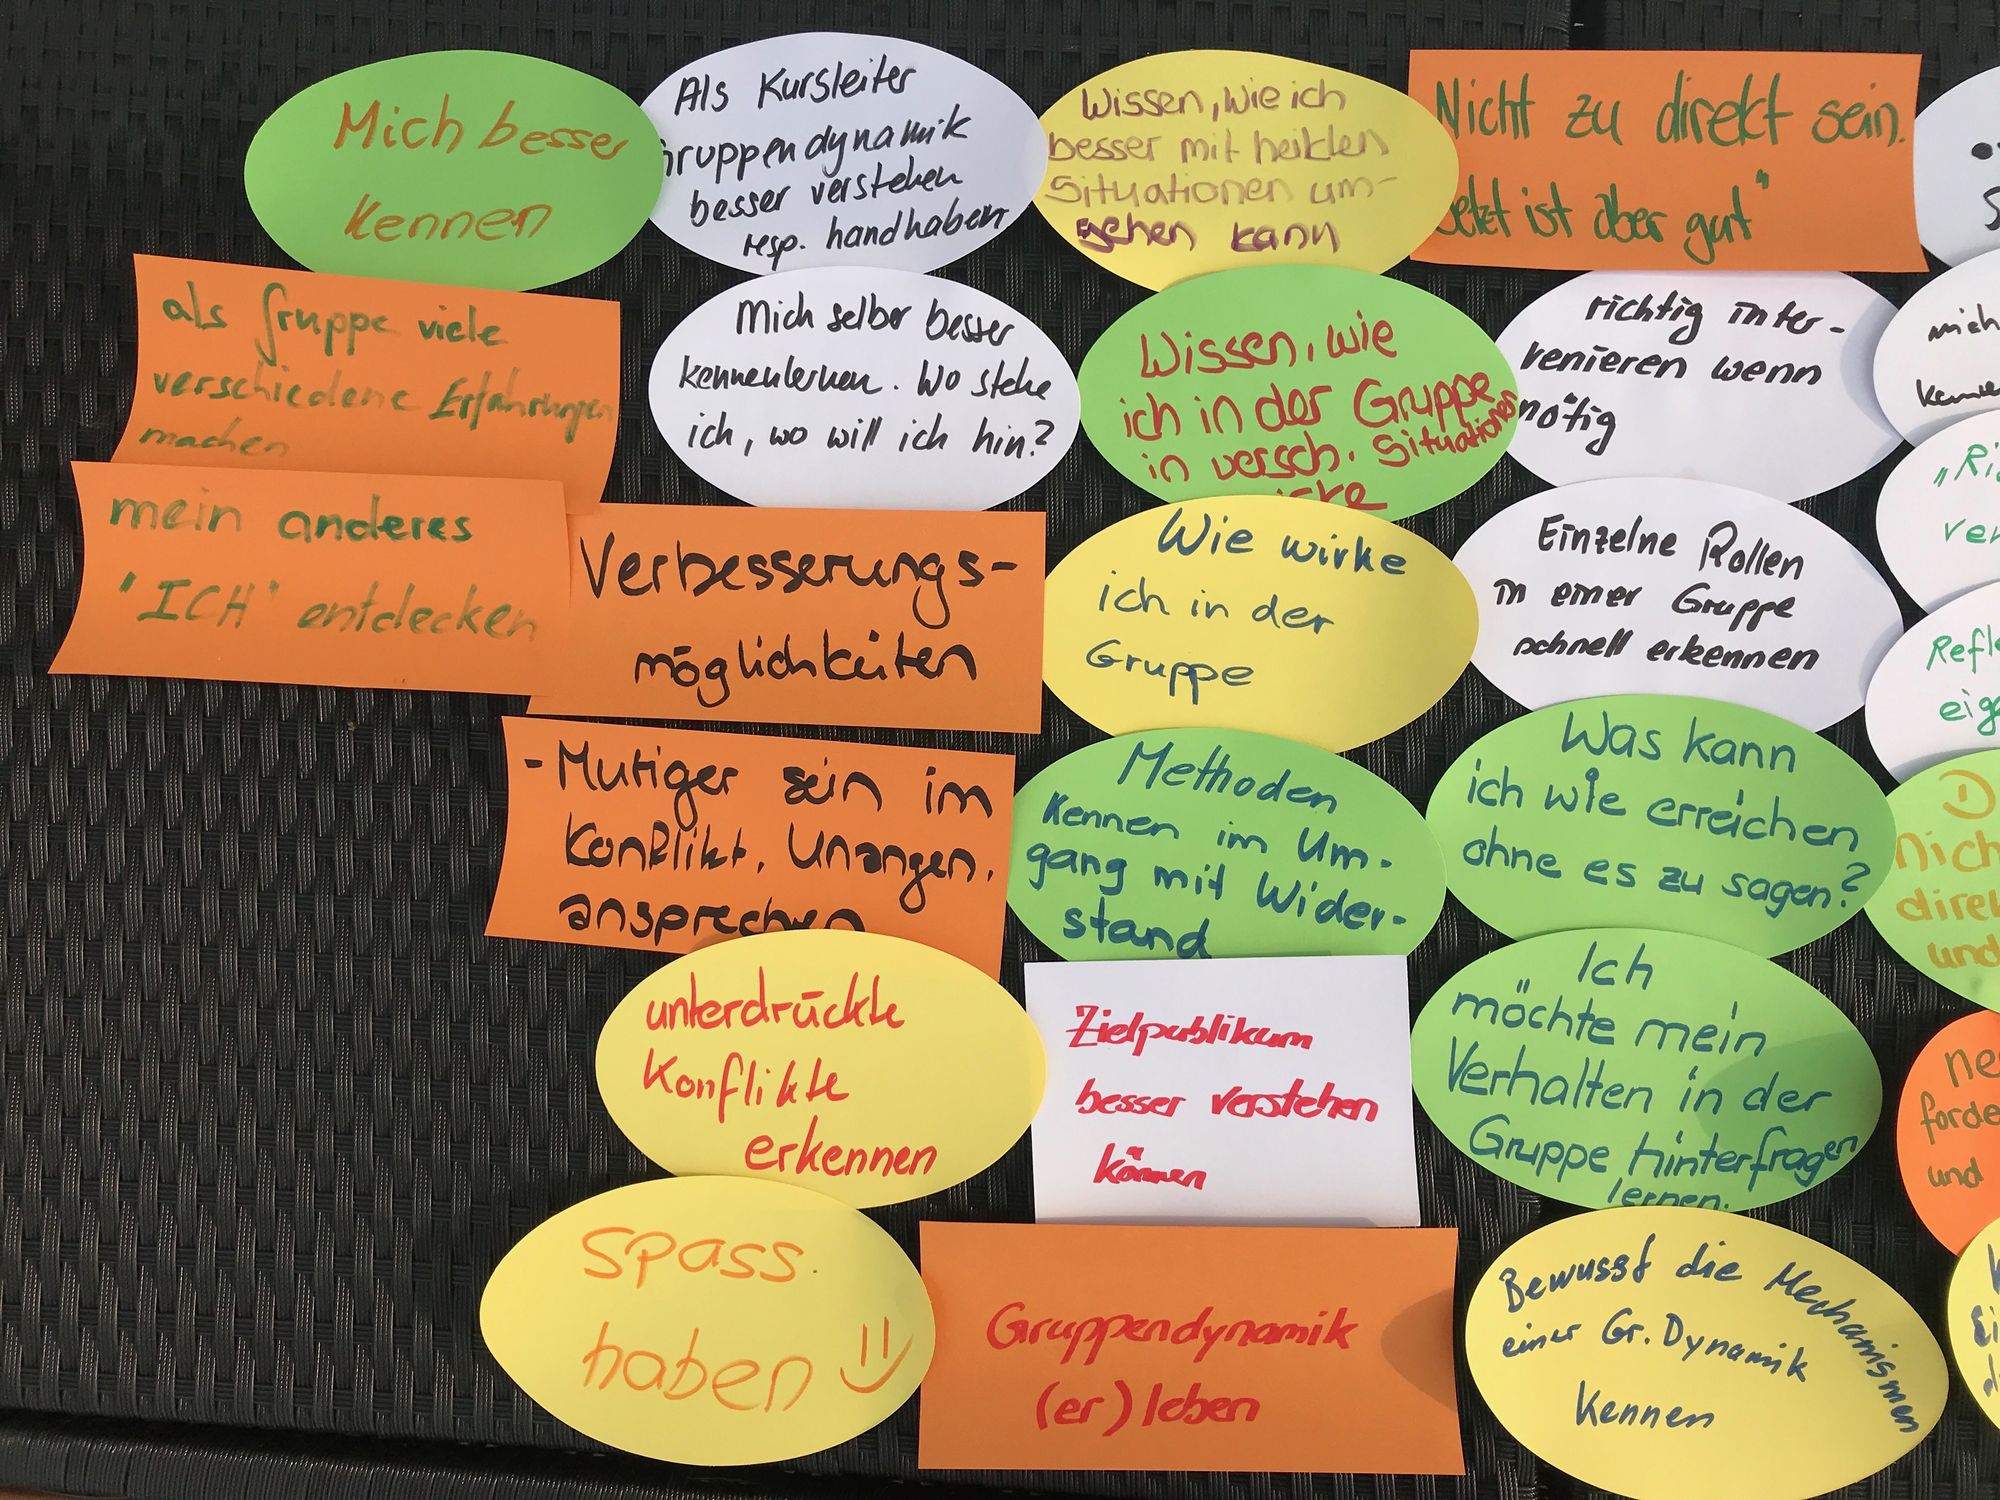 Mich besser
kennen
Als Kursleiter
Gruppendynamik
besser verstehen
resp. handhaben
Wissen, wie ich
besser mit heiklen
Situationen um-
gehen kann
Nicht zu direkt sein.
Jetzt ist aber gut"
als Gruppe viele
verschiedene Erfahrungen
machen
Mich selber besser
kennenlernen. Wo stehe
ich, wo will ich hin?
Wissen, wie
ich in der Gruppe
in versch. Situationen
richtig inter-
venieren wenn
nötig
mich
mein anderes
"ICH" entdecken
Verbesserungs-
möglichkeiten
Wie wirke
ich in der
Gruppe
Einzelne Rollen
in einer Gruppe
schnell erkennen
- Mutiger sein im
Konflikt, Unangen.
ansprechen
Methoden
kennen im Um-
gang mit Wider-
stand
Was kann
ich wie erreichen
ohne es zu sagen?
unterdrückte
Konflikte
erkennen
Zielpublikum
besser verstehen
können
Ich
möchte mein
Verhalten in der
Gruppe hinterfragen
lernen.
und
und
Spass
haben
Gruppendynamik
(er) leben
Bewusst die Mechanismen
einer Gr. Dynamik
kennen